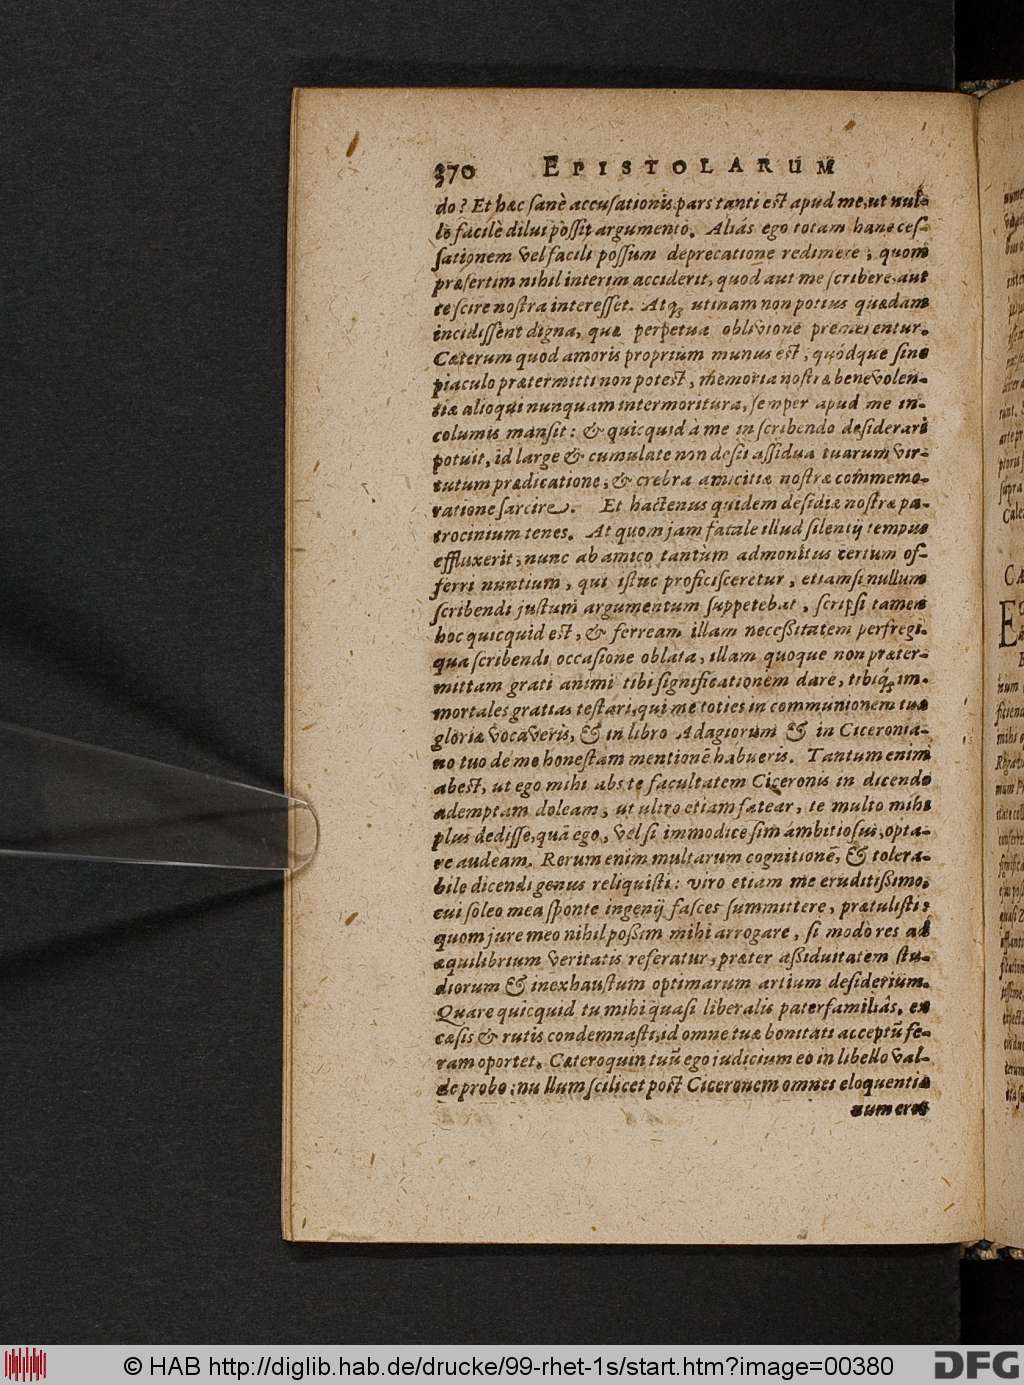 370 EPISTOLARUM
do? Et hæc sanè accusationis pars tanti est apud me, ut nul-
lo facilè dilui possit argumento. Aliás ego totam hanc ces-
sationem vel facili possum deprecatione redimere, quom
præsertim nihil interim acciderit, quod aut me scribere aut
te scire nostra interesset. Atq; utinam non potius quædam
incidissent digna, quæ perpetua oblivione premerentur.
Cæterum quod amoris proprium munus est, quódque sine
piaculo prætermitti non potest, memoria nostræ benevolen-
tiæ alioqui nunquam intermoritura, semper apud me in-
columis mansit: & quicquid à me in scribendo desiderari
potuit, id large & cumulate non desii assidua tuarum vir-
tutum prædicatione, & crebra amicitiæ nostræ commemo-
ratione sarcire. Et hactenus quidem desidiæ nostræ pa-
trocinium tenes. At quom jam fatale illud silentij tempus
effluxerit, nunc ab amico tantùm admonitus certum of-
ferri nuntium, qui istuc proficisceretur, etiamsi nullum
scribendi justum argumentum suppetebat, scripsi tamen
hoc quicquid est, & ferream illam necessitatem perfregi.
qua scribendi occasione oblata, illam quoque non præter-
mittam grati animi tibi significationem dare, tibiq; im-
mortales gratias testari, qui me toties in communionem tuæ
gloriæ vocaveris, & in libro Adagiorum & in Ciceronia-
no tuo de me honestam mentionē habueris. Tantum enim
abest, ut ego mihi abs te facultatem Ciceronis in dicendo
ademptam doleam, ut ultro etiam fatear, te multo mihi
plus dedisse, quā ego, vel si immodice sim ambitiosus, opta-
re audeam. Rerum enim multarum cognitionē, & tolera-
bile dicendi genus reliquisti: viro etiam me eruditissimo,
cui soleo mea sponte ingenij fasces summittere, prætulisti:
quom jure meo nihil possim mihi arrogare, si modò res ad
æquilibrium veritatis referatur, præter assiduitatem stu-
diorum & inexhaustum optimarum artium desiderium.
Quare quicquid tu mihi quasi liberalis paterfamiliâs, ex
cæsis & rutis condemnasti, id omne tuæ bonitati acceptū fe-
ram oportet. Cæteroquin tuū ego judicium eo in libello val-
de probo: nullum scilicet post Ciceronem omnes eloquentiæ
numeros
© HAB http://diglib.hab.de/drucke/99-rhet-1s/start.htm?image=00380
DFG